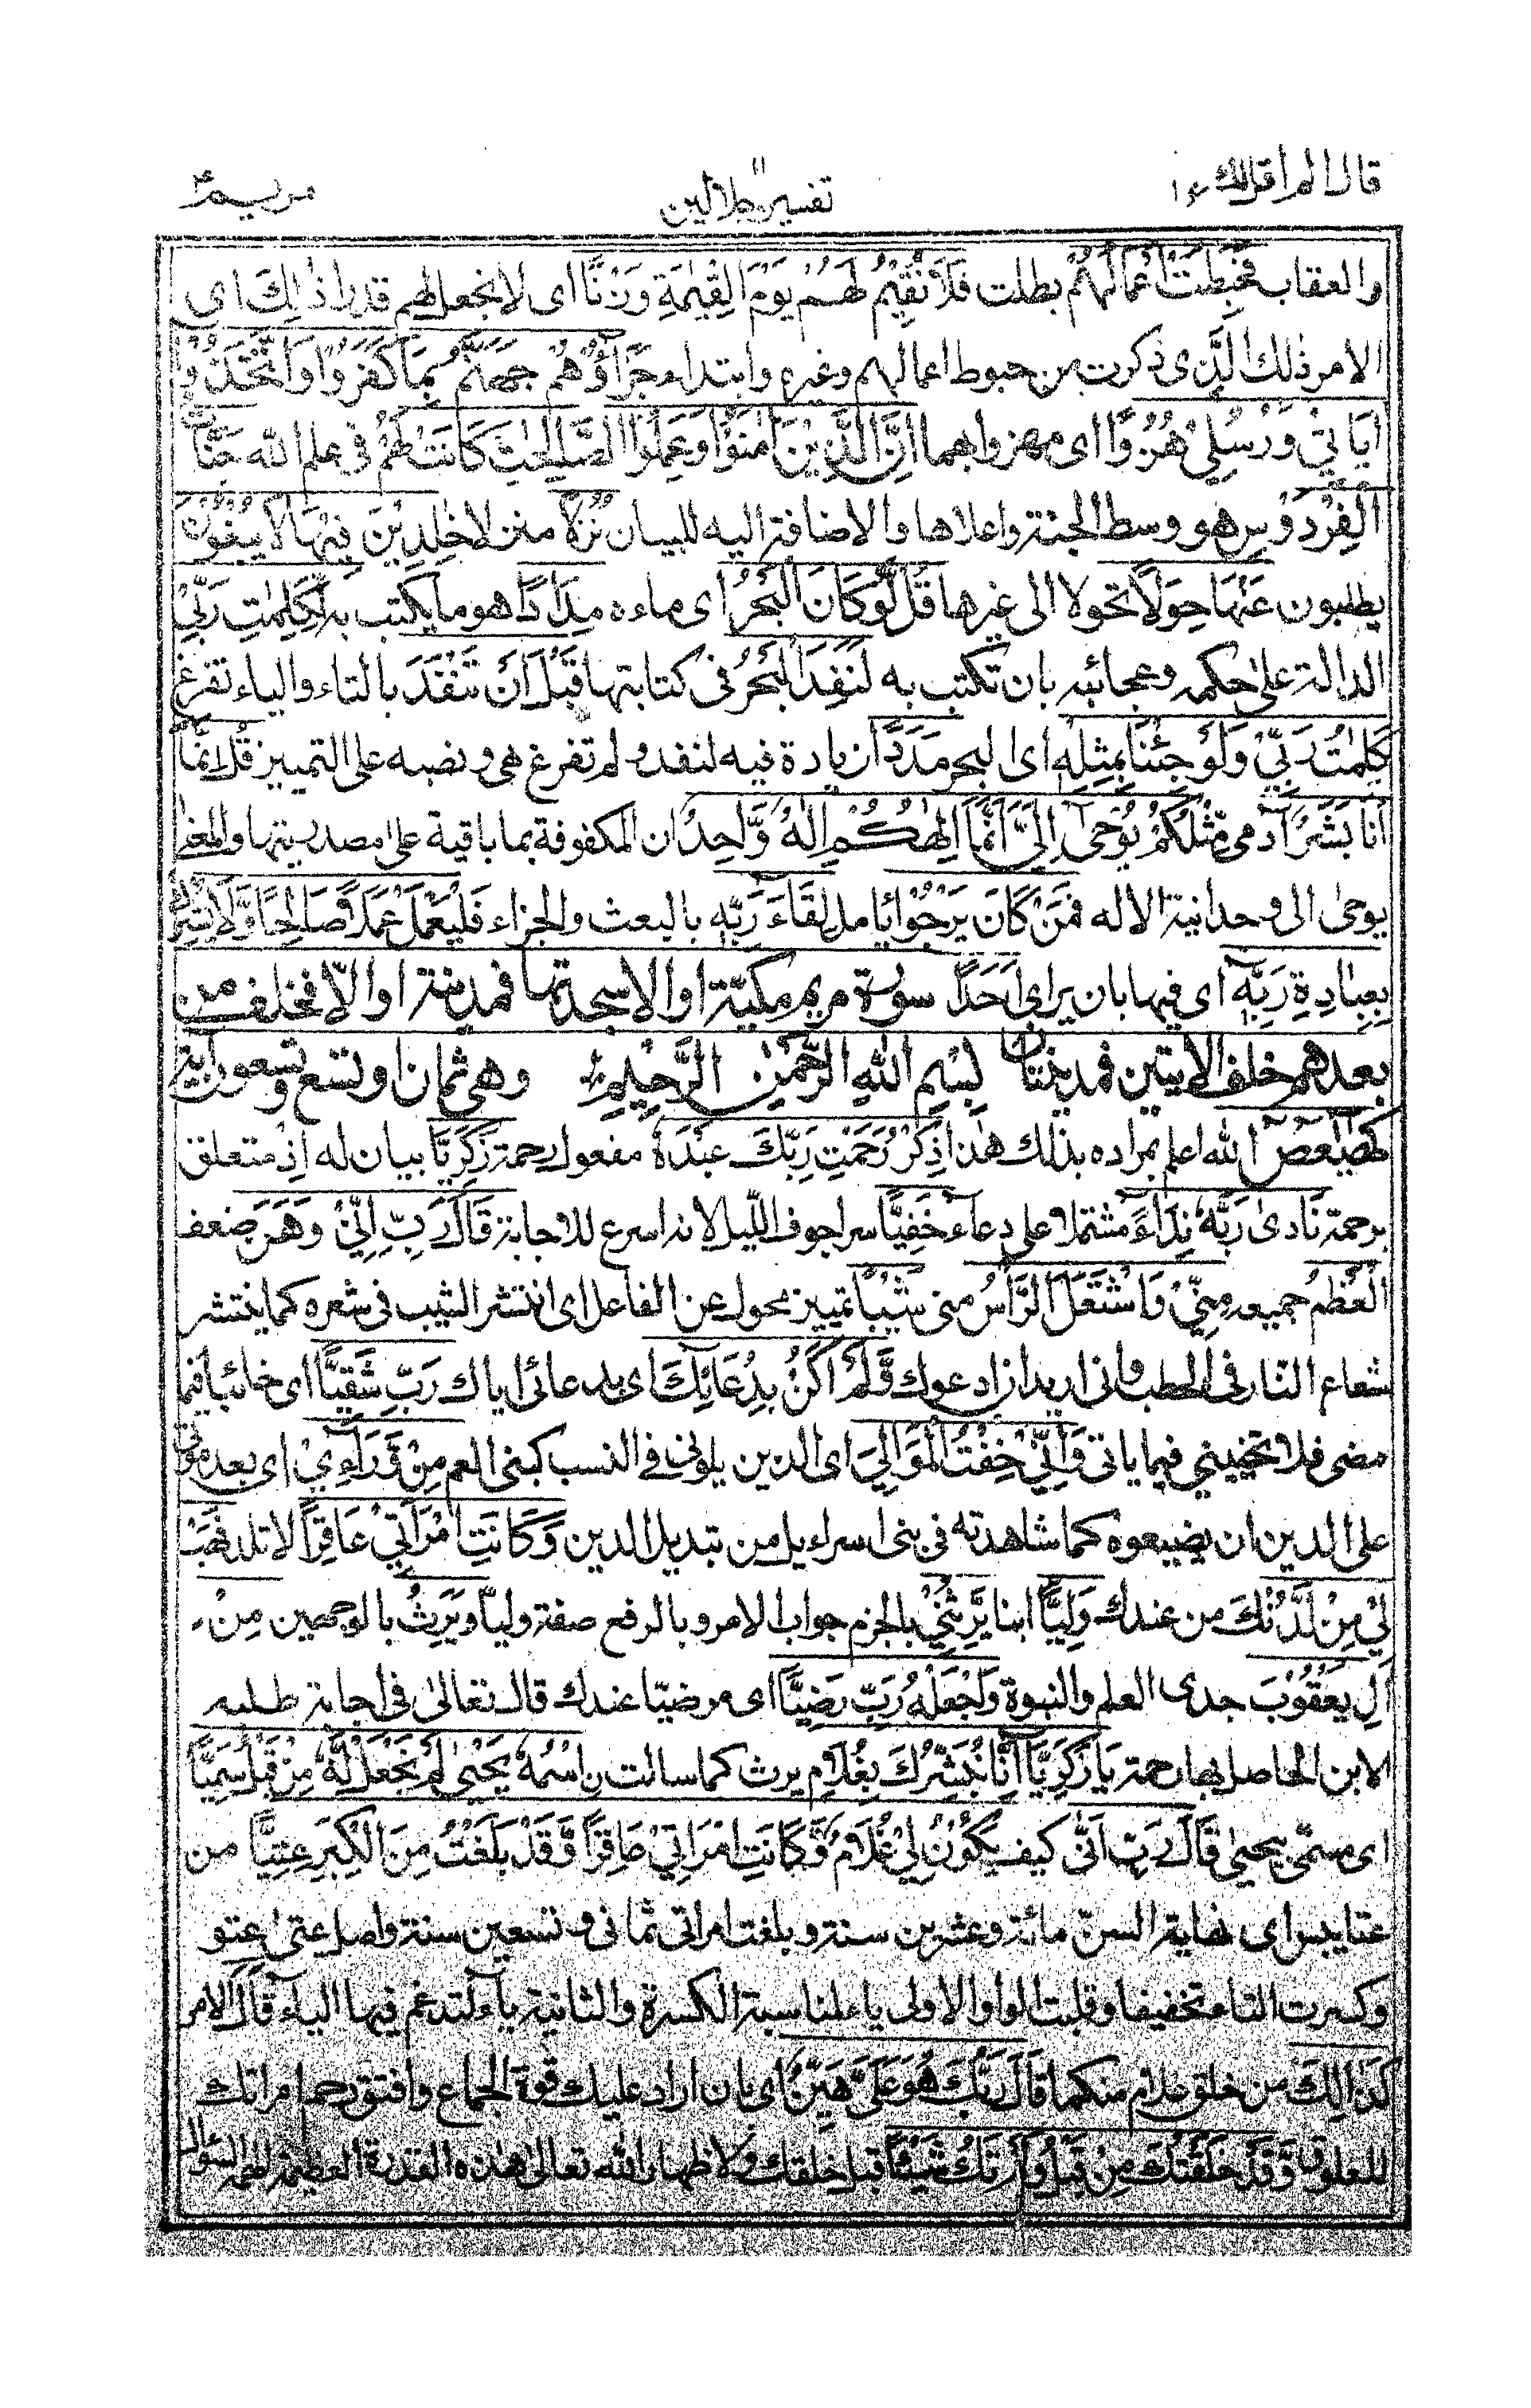 قال الم اقل لك ١٦
تفسير جلالين
مريم
والعقاب فَحَبِطَتْ اَعْمَالُهُمْ بطلت فَلَا نُقِيْمُ لَهُمْ يَوْمَ الْقِيٰمَةِ وَزْنًا اى لا نجعل لهم قدرا ذٰلِكَ اى
الامر ذلك الَّذِى ذكرت من حبوط اعمالهم وغيره وابتداء جَزَآؤُهُمْ جَهَنَّمُ بِمَا كَفَرُوْا وَاتَّخَذُوْا
اٰيَاتِيْ وَرُسُلِيْ هُزُوًا اى مهزوا بهما اِنَّ الَّذِيْنَ اٰمَنُوْا وَعَمِلُوا الصّٰلِحٰتِ كَانَتْ لَهُمْ فى علم الله جَنّٰتُ
الْفِرْدَوْسِ هو وسط الجنة واعلاها والاضافة اليه للبيان نُزُلًا منزلا خٰلِدِيْنَ فِيْهَا لَا يَبْغُوْنَ
يطلبون عَنْهَا حِوَلًا تحولا الى غيرها قُلْ لَّوْ كَانَ الْبَحْرُ اى ماءه مِدَادًا هو ما يكتب به لِّكَلِمٰتِ رَبِّيْ
الدالة على حكمه وعجائبه بان تكتب به لَنَفِدَ الْبَحْرُ فى كتابتها قَبْلَ اَنْ تَنْفَدَ بالتاء والياء تفرغ
كَلِمٰتُ رَبِّيْ وَلَوْ جِئْنَا بِمِثْلِهٖ اى البحر مَدَدًا زيادة فيه لنفد ولم تفرغ هى ونصبه على التمييز قُلْ اِنَّمَا
اَنَا بَشَرٌ آدمى مِّثْلُكُمْ يُوْحٰى اِلَيَّ اَنَّمَا اِلٰهُكُمْ اِلٰهٌ وَّاحِدٌ ان المكفوفة بما باقية على مصدريتها والمعنى
يوحى الى وحدانية الاله فَمَنْ كَانَ يَرْجُوْا يامل لِقَآءَ رَبِّهٖ بالبعث والجزاء فَلْيَعْمَلْ عَمَلًا صَالِحًا وَّلَا يُشْرِكْ
بِعِبَادَةِ رَبِّهٖٓ اى فيها بان يراى اَحَدًا سورة مريم مكيّة او الا سجدتها فمدنية او الّا فخلف من
بعدهم خلف الآيتين فمدنيتان بِسْمِ اللهِ الرَّحْمٰنِ الرَّحِيْمِ وهى ثمان او تسع وتسعون آية
كٓهٰيٰعٓصٓ الله اعلم بمراده بذلك هذا ذِكْرُ رَحْمَتِ رَبِّكَ عَبْدَهٗ مفعول رحمة زَكَرِيَّا بيان له اِذْ متعلق
برحمة نَادٰى رَبَّهٗ نِدَآءً مشتملا على دعاء خَفِيًّا سرا جوف الليل لانه اسرع للاجابة قَالَ رَبِّ اِنِّيْ وَهَنَ ضعف
الْعَظْمُ جميعه مِنِّيْ وَاشْتَعَلَ الرَّاْسُ منى شَيْبًا تمييز محول عن الفاعل اى انتشر الشيب فى شعره كما ينتشر
شعاع النّار فى الحطب وانى اريد ان ادعوك وَّلَمْ اَكُنْ بِدُعَآئِكَ اى بدعائى اياك رَبِّ شَقِيًّا اى خائبا فيما
مضى فلا تخيبني فيما ياتى وَاِنِّيْ خِفْتُ الْمَوَالِيَ اى الذين يلونى فى النسب كبنى العم مِنْ وَّرَآءِيْ اى بعد موتى
على الدين ان يضيعوه كما شاهدته فى بنى اسراءيل من تبديل الدين وَكَانَتِ امْرَاَتِيْ عَاقِرًا لا تلد فَهَبْ
لِيْ مِنْ لَّدُنْكَ من عندك وَلِيًّا ابنا يَّرِثُنِيْ بالجزم جواب الامر وبالرفع صفة وليا وَيَرِثُ بالوجهين مِنْ
اٰلِ يَعْقُوْبَ جدى العلم والنبوة وَاجْعَلْهُ رَبِّ رَضِيًّا اى مرضيّا عندك قال تعالى فى اجابة طلبه
الابن الحاصل بها رحمة يَا زَكَرِيَّآ اِنَّا نُبَشِّرُكَ بِغُلَامٍ يرث كما سالت نِ اسْمُهٗ يَحْيٰى لَمْ نَجْعَلْ لَّهٗ مِنْ قَبْلُ سَمِيًّا
اى مسمّى بيحيى قَالَ رَبِّ اَنّٰى كيف يَكُوْنُ لِيْ غُلَامٌ وَّكَانَتِ امْرَاَتِيْ عَاقِرًا وَّقَدْ بَلَغْتُ مِنَ الْكِبَرِ عِتِيًّا من
عتا يبس اى نهاية السن مائة وعشرين سنة وبلغت امراتى ثمانى وتسعين سنة واصل عتى عتوو
وكسرت التاء تخفيفا وقلبت الواو الاولى ياء لمناسبة الكسرة والثانية ياء لتدغم فيها الياء قَالَ الامر
كَذٰلِكَ من خلق غلام منكما قَالَ رَبُّكَ هُوَ عَلَيَّ هَيِّنٌ اى بان ارد عليك قوة الجماع وافتق رحم امراتك
للعلوق وَّقَدْ خَلَقْتُكَ مِنْ قَبْلُ وَلَمْ تَكُ شَيْئًا قبل خلقك ولاظهار الله تعالى هذه القدرة العظيمة الهمه السؤال